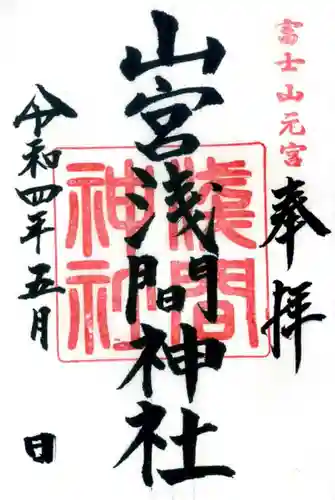 富士山元宮
奉拝
山宮浅間神社
浅間神社
令和四年五月 日